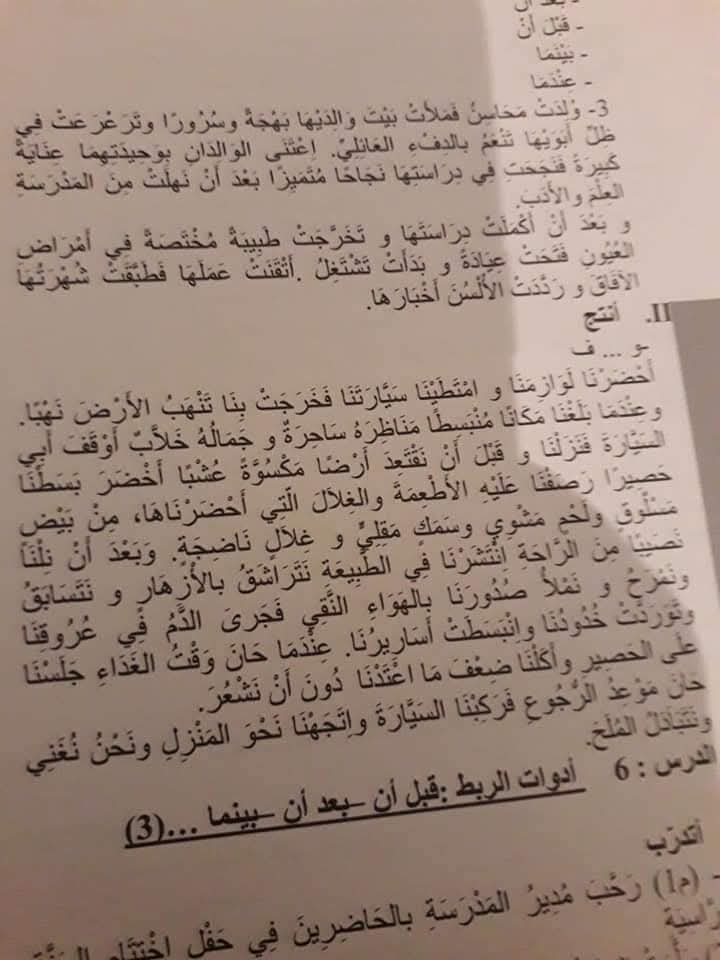 - بَعْدَ أَنْ
- قَبْلَ أَنْ
- بَيْنَمَا
- عِنْدَمَا
3- وُلِدَتْ مَحَاسِنُ فَمَلأَتْ بَيْتَ وَالِدَيْهَا بَهْجَةً وسُرُورًا وتَرَعْرَعَتْ فِي
ظِلِّ أَبَوَيْهَا تَنْعَمُ بالدِفْءِ العَائِلِيِّ. اِعْتَنَى الوَالِدَانِ بِوَحِيدَتِهِمَا عِنَايَةً
كَبِيرَةً فَنَجَحَتْ فِي دِرَاسَتِهَا نَجَاحًا مُتَمَيِزًا بَعْدَ أَنْ نَهِلَتْ مِنَ المَدْرَسَةِ
العِلْمَ والأَدَبَ.
و بَعْدَ أَنْ أَكْمَلَتْ دِرَاسَتَهَا و تَخَرَّجَتْ طَبِيبَةً مُخْتَصَةً فِي أَمْرَاضِ
العُيُونِ فَتَحَتْ عِيَادَةً و بَدَأَتْ تَشْتَغِلُ .أَتْقَنَتْ عَمَلَهَا فَطَبَّقَتْ شُهْرَتُهَا
الآفَاقَ و رَدَّدَتْ الأَلْسُنَ أَخْبَارَهَا.
II. أنتج
-و ... ف
أَحْضَرْنَا لَوَازِمَنَا و امْتَطَيْنَا سَيَّارَتَنَا فَخَرَجَتْ بِنَا تَنْهَبُ الأَرْضَ نَهْبًا.
وعِنْدَمَا بَلَغْنَا مَكَانًا مُنْبَسِطًا مَنَاظِرَهُ سَاحِرَةٌ و جَمَالُهُ خَلاَّبٌ أَوْقَفَ أَبِي
السَيَّارَةَ فَنَزَلْنَا و قَبْلَ أَنْ نَقْتَعِدَ أَرْضًا مَكْسُوَّةً عُشْبًا أَخْضَرَ بَسَطْنَا
حَصِيرًا رَصَفْنَا عَلَيْهِ الأَطْعِمَةَ والغِلاَلَ الّتِي أَحْضَرْنَاهَا، مِنْ بَيْضٍ
مَسْلُوقٍ ولَحْمٍ مَشْوِي وسَمَكٍ مَقْلِيٍّ و غِلاَلٍ نَاضِجَةٍ. وَبَعْدَ أَنْ نِلْنَا
نَصِيبًا مِنَ الرَّاحَةِ اِنْتَشَرْنَا فِي الطَّبِيعَةِ نَتَرَاشَقُ بالأَزْهَارِ و نَتَسَابَقُ
ونَمْرَحُ و نَمْلأُ صُدُورَنَا بِالهَوَاءِ النَّقِي فَجَرَى الدَّمُ فِي عُرُوقِنَا
وتَوَرَدَتْ خُدُودُنَا وانْبَسَطَتْ أَسَارِيرُنَا. عِنْدَمَا حَانَ وَقْتُ الغَدَاءِ جَلَسْنَا
عَلَى الحَصِيرِ وأَكَلْنَا ضِعْفَ مَا اعْتَدْنَا دُونَ أَنْ نَشْعُرَ.
حَانَ مَوْعِدُ الرُّجُوعِ فَرَكِبْنَا السَيَّارَةَ واِتَجَهْنَا نَحْوَ المَنْزِلِ ونَحْنُ نُغَنِي
ونَتَبَادَلُ المُلَحَ.
الدرس : 6 أدوات الربط :قبل أن –بعد أن –بينما ...(3)
أتدرّب
- (م1) رَحَّبَ مُدِيرُ المَدْرَسَةِ بالحَاضِرِينَ فِي حَفْلِ اخْتِتَامِ